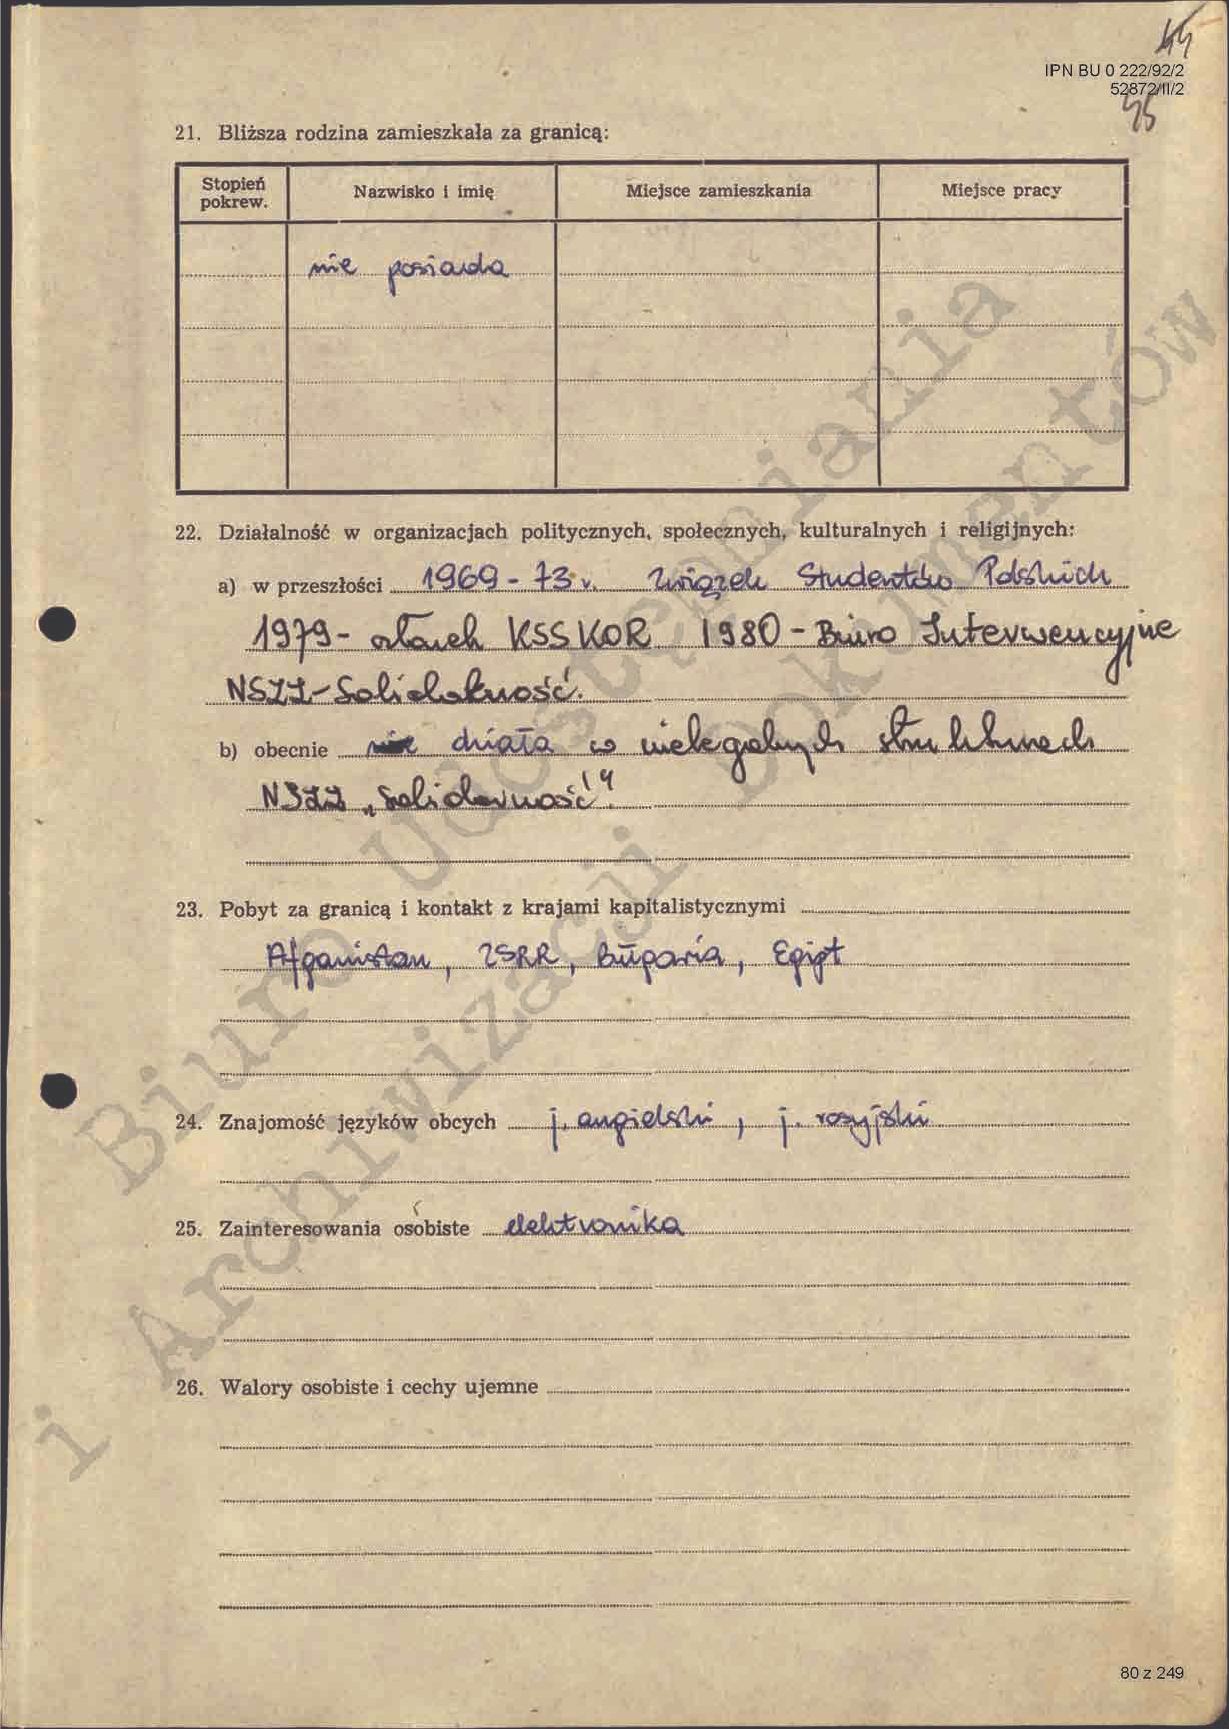 44
IPN BU 0 222/92/2
52872/II/2
45
21. Bliższa rodzina zamieszkała za granicą:
Stopień pokrew. Nazwisko i imię Miejsce zamieszkania Miejsce pracy
nie posiada
22. Działalność w organizacjach politycznych, społecznych, kulturalnych i religijnych:
a) w przeszłości 1969-73 r. Związek Studentów Polskich
1979- członek KSS KOR 1980 - Biuro Interwencyjne
NSZZ-Solidarność.
b) obecnie nie działa w nielegalnych strukturach
NSZZ „Solidarność".
23. Pobyt za granicą i kontakt z krajami kapitalistycznymi
Afganistan, ZSRR, Bułgaria, Egipt
24. Znajomość języków obcych j. angielski, j. rosyjski
25. Zainteresowania osobiste elektronika
26. Walory osobiste i cechy ujemne
Biuro Udostępniania
i Archiwizacji Dokumentów
80 z 249